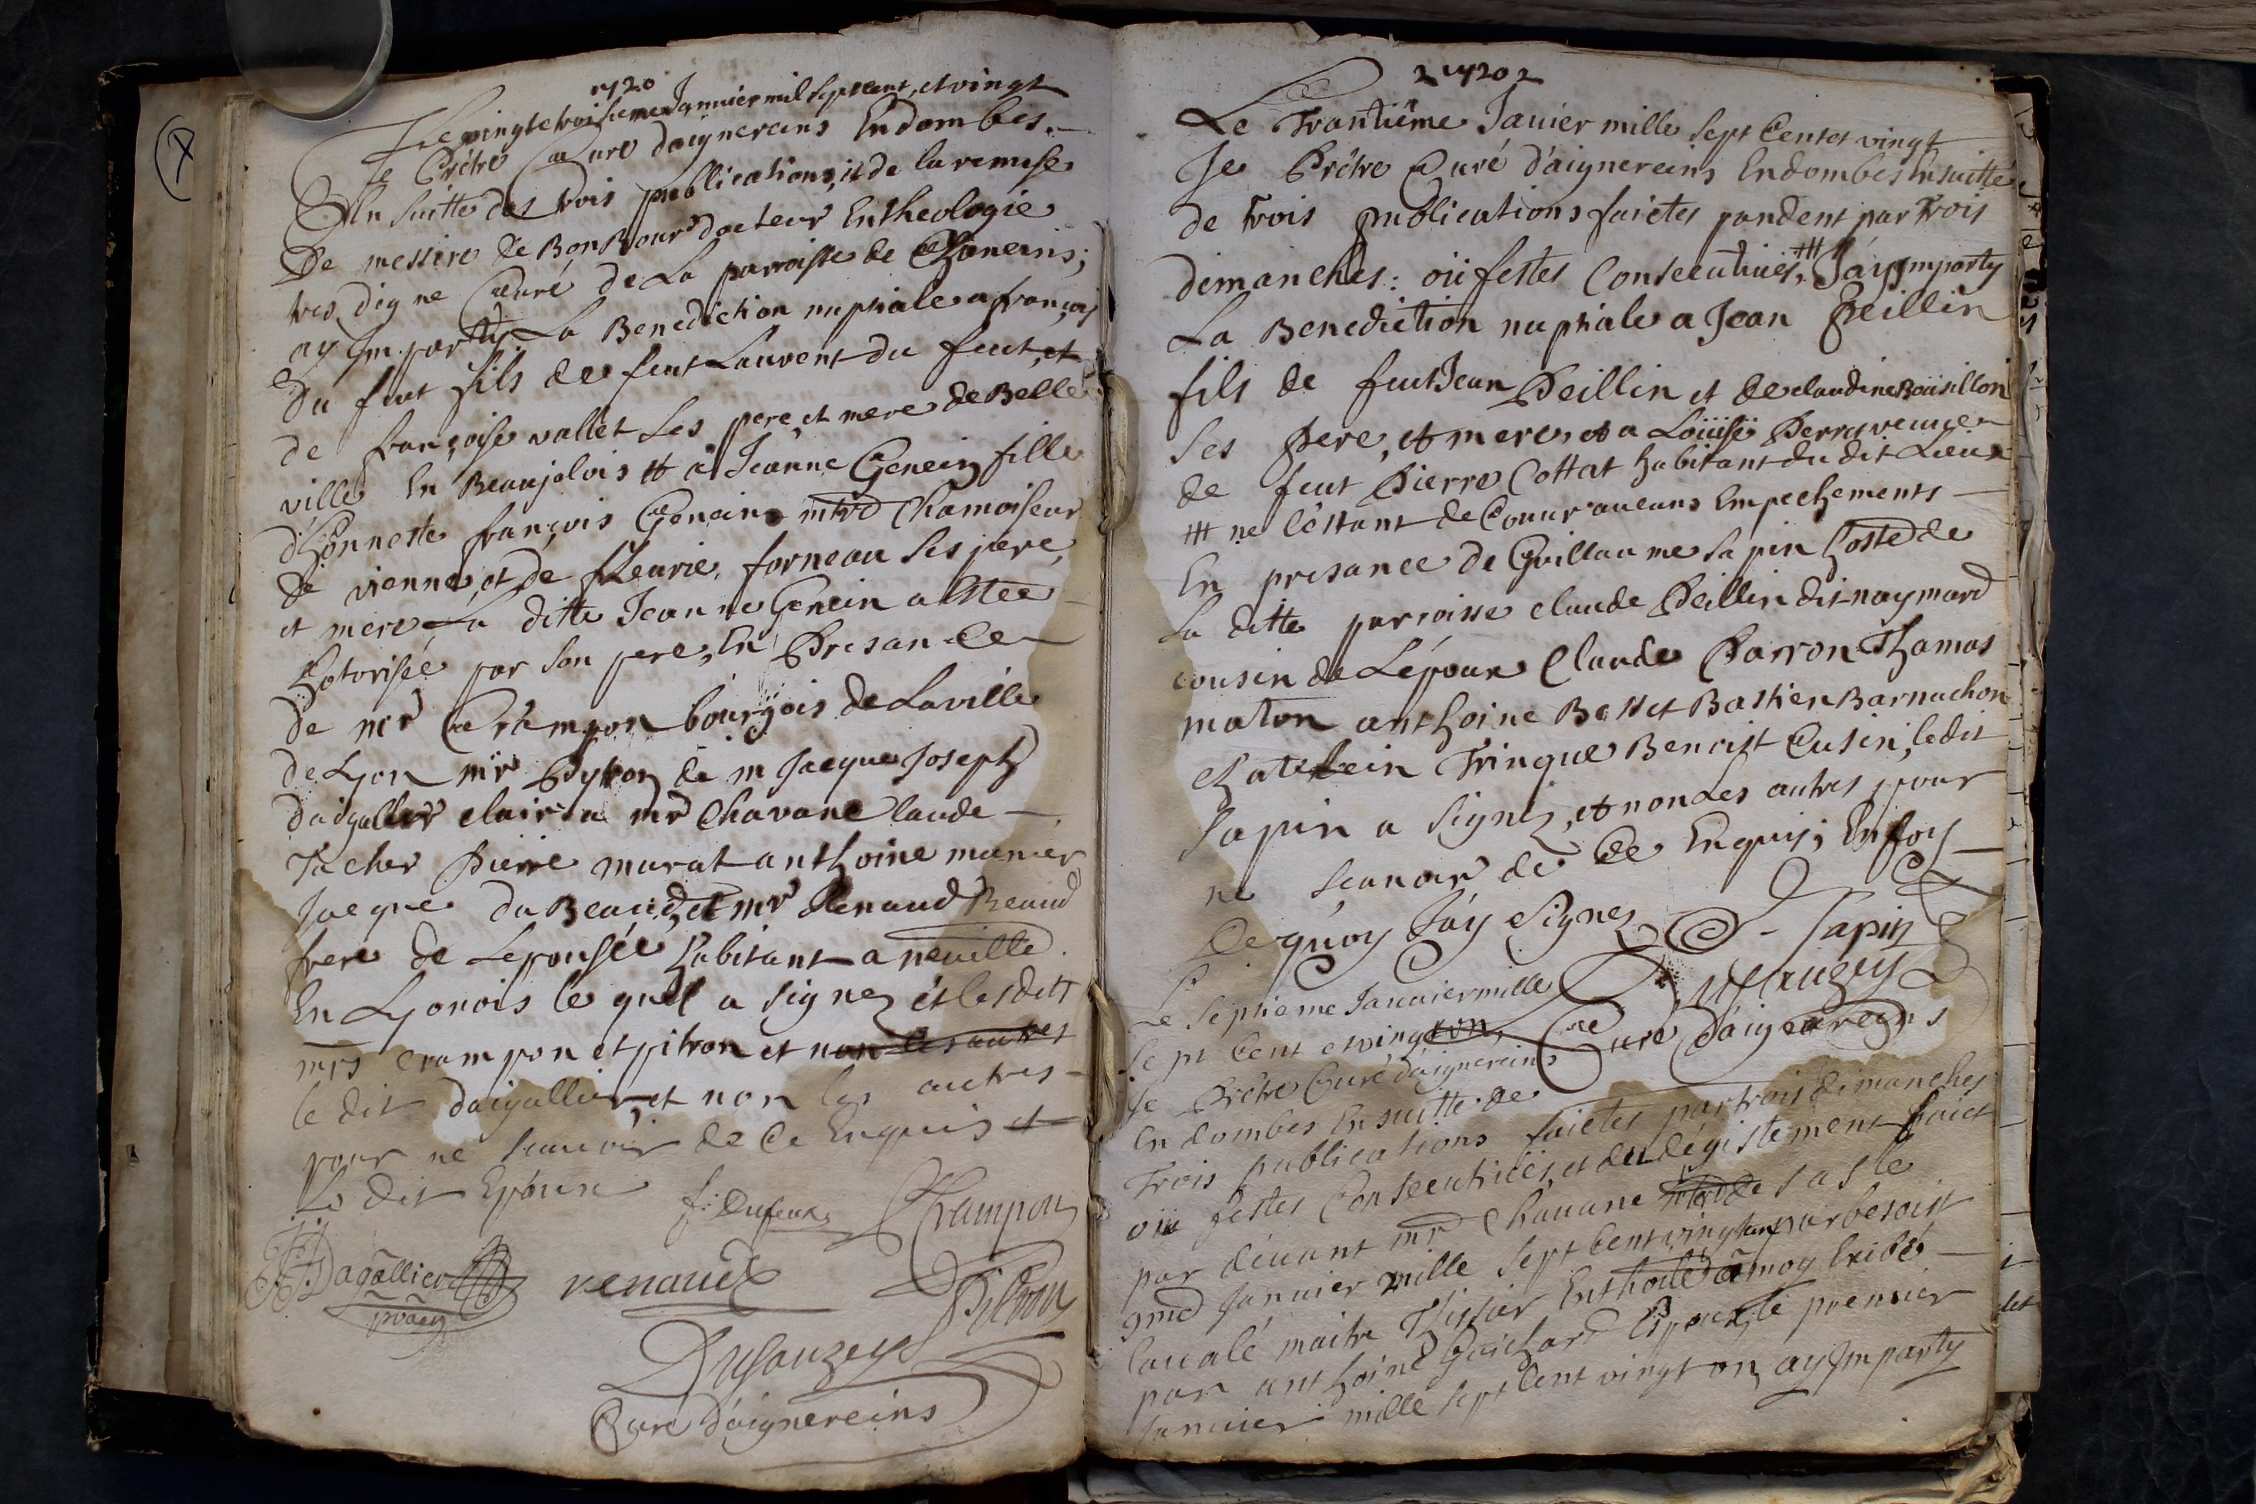 1720
Le vingte troisieme Jannier mil sept cent, et vingt
Je Prétre Curé daignereins En dombes.
En suitte des trois publications, et de la remise
De messire de Bon Bour docteur En theologie
tres digne Curé de La parroisse de Chaneins;
ay Imparty La Benediction nuptiale a françois
du feut fils de feut Laurent du feut, et
de françoise vallet Ses pere, et mere de Belle
ville En Beaujolois et a Jeanne Genein fille
d'honneste françois Genein mtre Chamoiseur
de vienne, et de fleurie, forneau Ses pere,
et mere La ditte Jeanne Genein a Estee
hotorisée par Son pere, En Presance
de mr Crampon bourgois de La ville
de Lyon mr Pytron de m Jacque Joseph
daigallier mr Chavane laude
Tacher Pierre murat anthoine munier
Jacque du Beaud, et mr Renaud Reaud
frere de Lepousée habitant a neuille
En Lyonois le quel a signez et les dits
mrs Crampon et pitron et non les autres
le dit daigallier, et non les autres
pour ne scauoir de Ce Enquis et
Le dit Epoux
f: Dufeux Crampon
Dagallier renaud Pitron
Dusauzey
Curé D'aignereins
2 1720 2
Le Trantiéme Janier mille Sept Cent et vingt
Je Prétre Curé d'aignereins En dombes Ensuitte
de trois publications faictes pandent par Trois
dimanches: oü festes Consecutiues, # J'áy Imparty
La Benediction nuptiale a Jean Peillin
fils de feut Jean Peillin et de claudine Bousillon
Ses Pere, et mere, et a Loüise Perra veuue
de feut Pierre Cottat habitant du dit Lieux
# ne S'estant decouur aucuns Empechements
En presance de Guillaume Sapin hoste de
La ditte parroisse claude Peillin dit naymard
cousin de Lépoux Claude Parron Thamas
maton anthoine Besset Bastien Barnachon
Chatelein Tringue Benoist Cusin, le dit
Sapin a Signez, et non Les autres pour
ne scauoir de Ce Enquis; En foy
De quoy J'áy Signez
Sapin
Dusauzey
Curé D'aignereins
Le Septieme Januier mille
Sept Cent et vingt on
Je Prétre Curé d'aignereins
En dombes Ensuitte de
Trois publications faictes par trois dimanches
oü festes Consecutiües, et du dégistement faict
par déuant mr Chauane
Januier mille Sept Cent vingt un par besoist
maitre a moy Exibé
par anthoine Guichard Epoux, le premier
Januier mille Sept Cent vingt on, ay Imparty